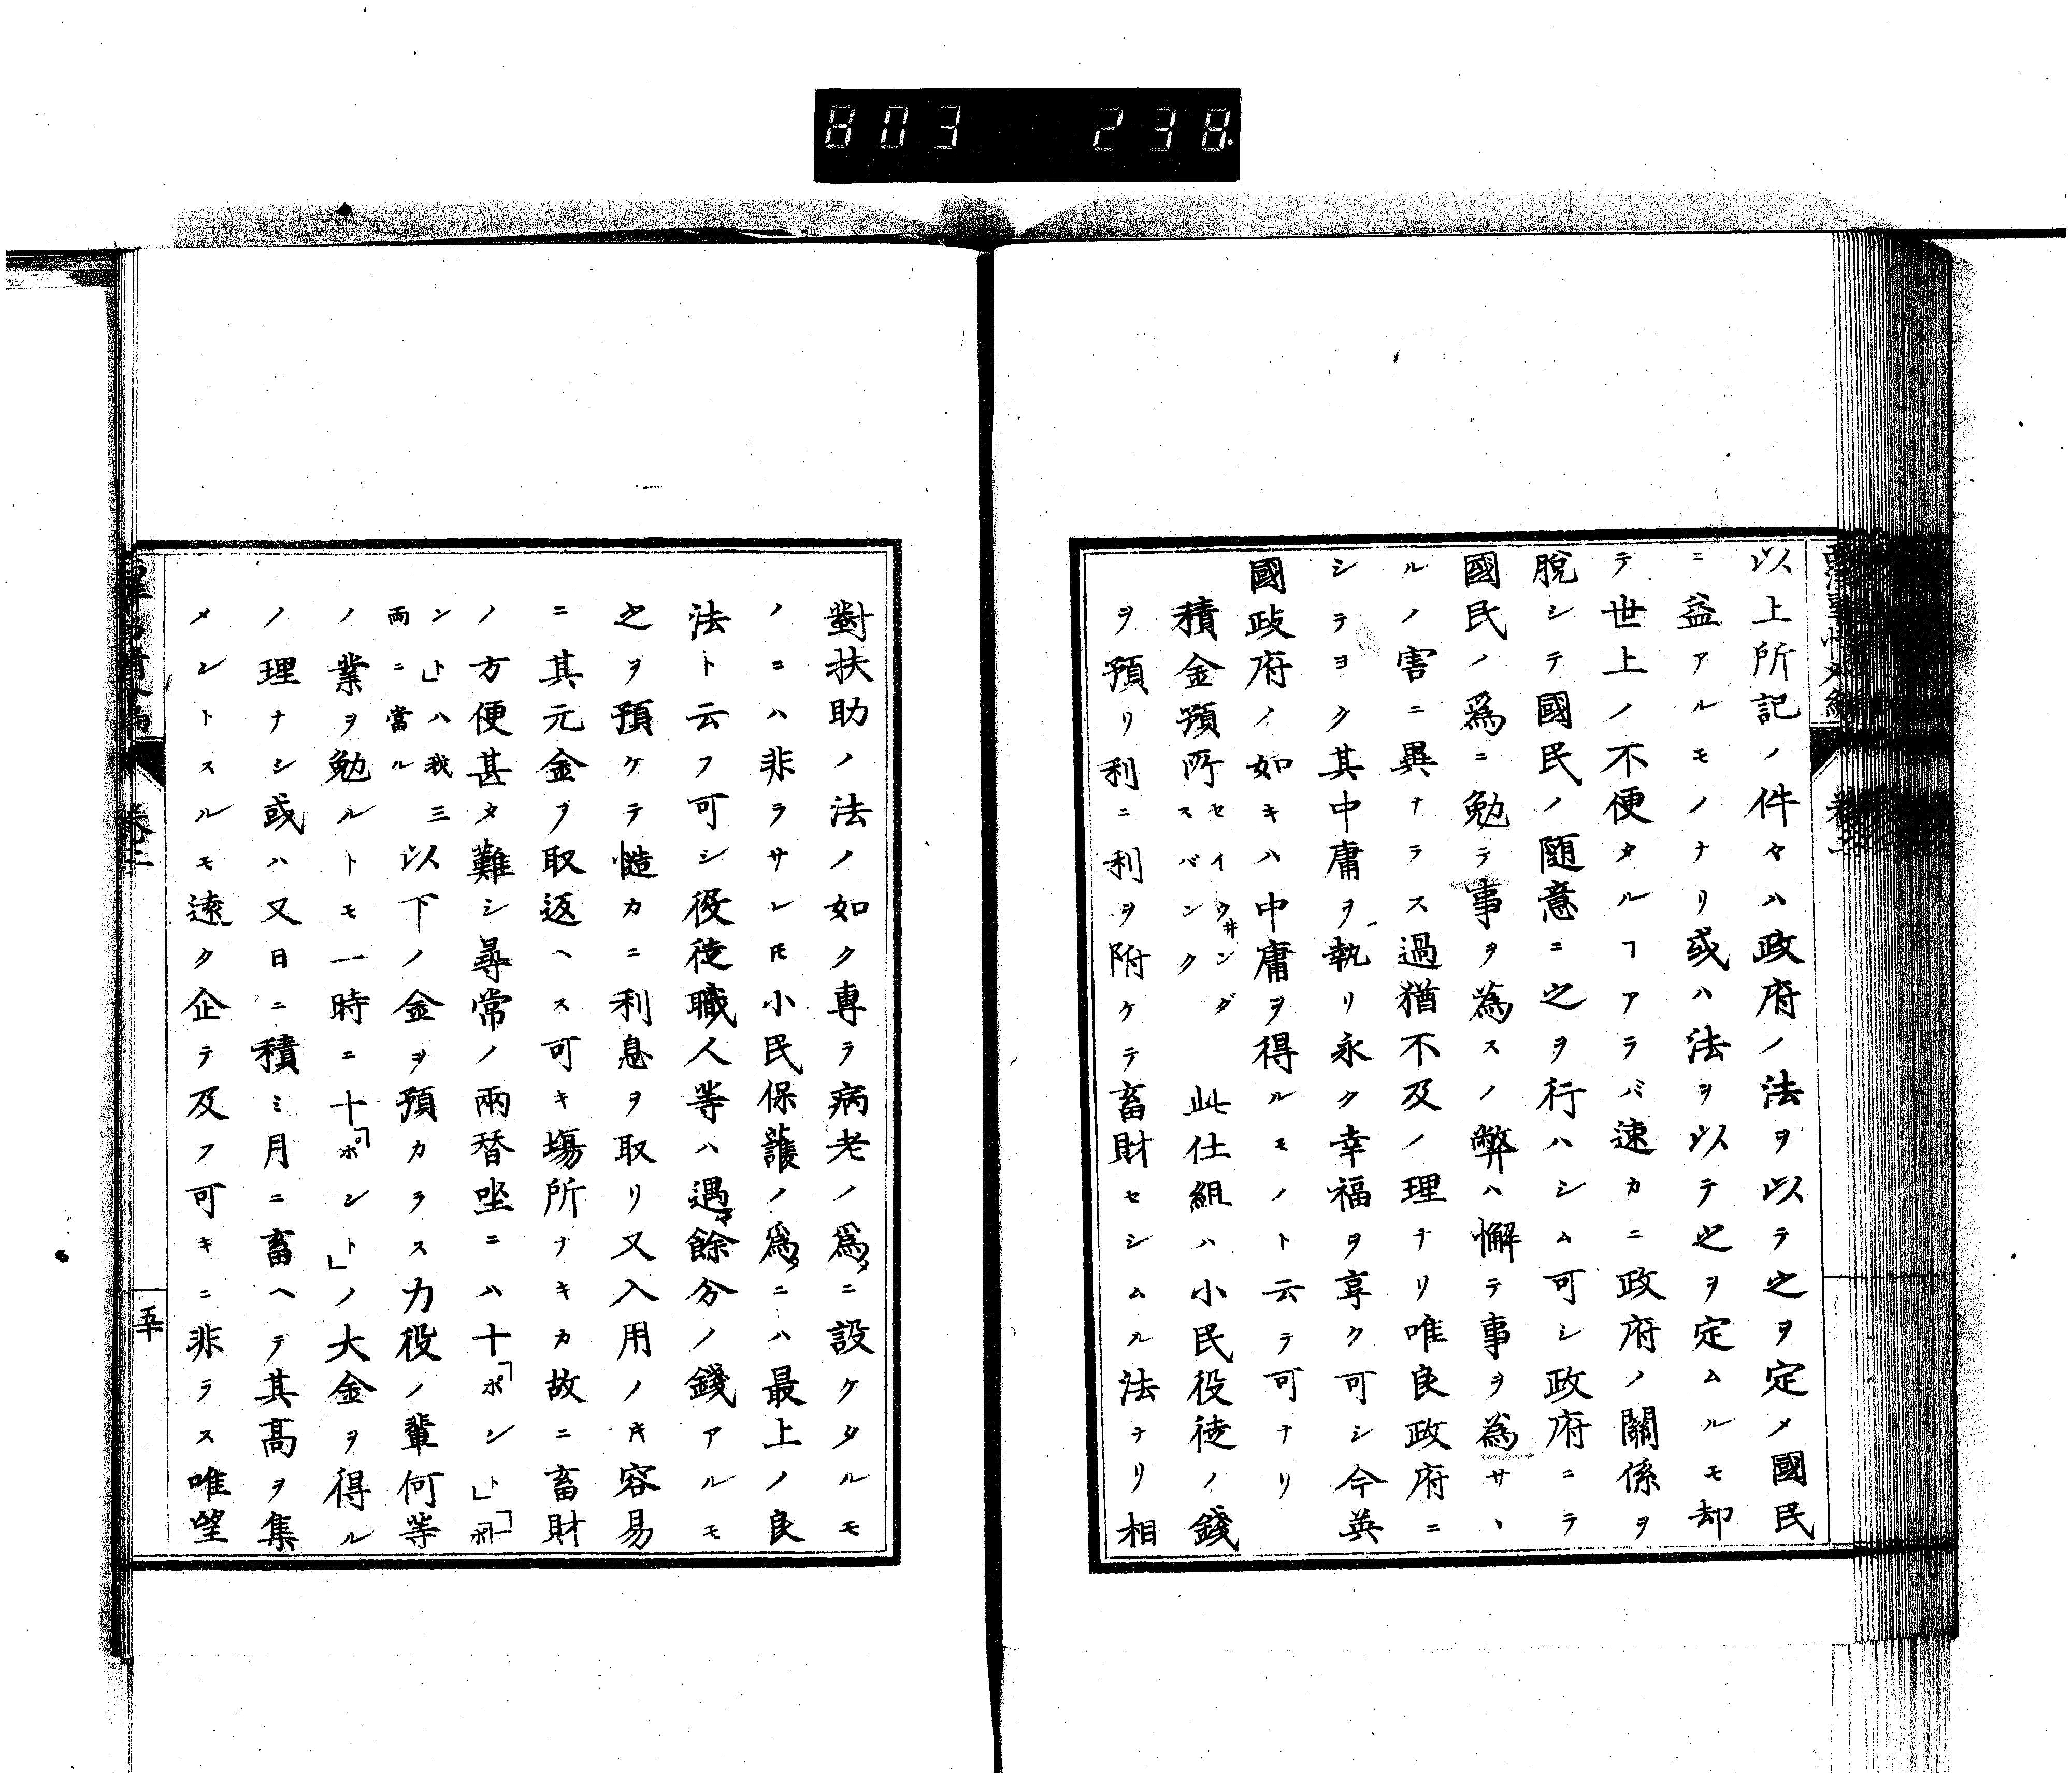 803 238
以上所記ノ件々ハ政府ノ法ヲ以テ之ヲ定メ國民
ニ益アルモノナリ或ハ法ヲ以テ之ヲ定ムルモ却
テ世上ノ不便タルヿアラバ速カニ政府ノ關係ヲ
脫シテ國民ノ随意ニ之ヲ行ハシム可シ政府ニテ
國民ノ爲ニ勉テ事ヲ為スノ弊ハ懈テ事ヲ為サヽ
ルノ害ニ異ナラス過猶不及ノ理ナリ唯良政府ニ
シテヨク其中庸ヲ執リ永ク幸福ヲ享ク可シ今英
國政府ノ如キハ中庸ヲ得ルモノト云テ可ナリ
積金預所セイウ井ングスバンク 此仕組ハ小民役徒ノ錢
ヲ預リ利ニ利ヲ附ケテ畜財セシムル法ナリ相
對扶助ノ法ノ如ク専ラ病老ノ爲タニ設ケタルモ
ノニハ非ラサレ𪜈小民保護ノ爲タニハ最上ノ良
法ト云フ可シ役徒職人等ハ遇マ餘分ノ錢アルモ
之ヲ預ケテ慥カニ利息ヲ取リ又入用ノ𪜈容易
ニ其元金ヲ取返ヘス可キ塲所ナキカ故ニ畜財
ノ方便甚タ難シ尋常ノ兩替坐ニハ十「ポンド」「一ポ
ンド」ハ我三兩ニ當ル以下ノ金ヲ預カラス力役ノ輩何等
ノ業ヲ勉ルトモ一時ニ十「ポンド」ノ大金ヲ得ル
ノ理ナシ或ハ又日ニ積ミ月ニ畜ヘテ其高ヲ集
メントスルモ遠タ企テ及フ可キニ非ラス唯望
卷二
五